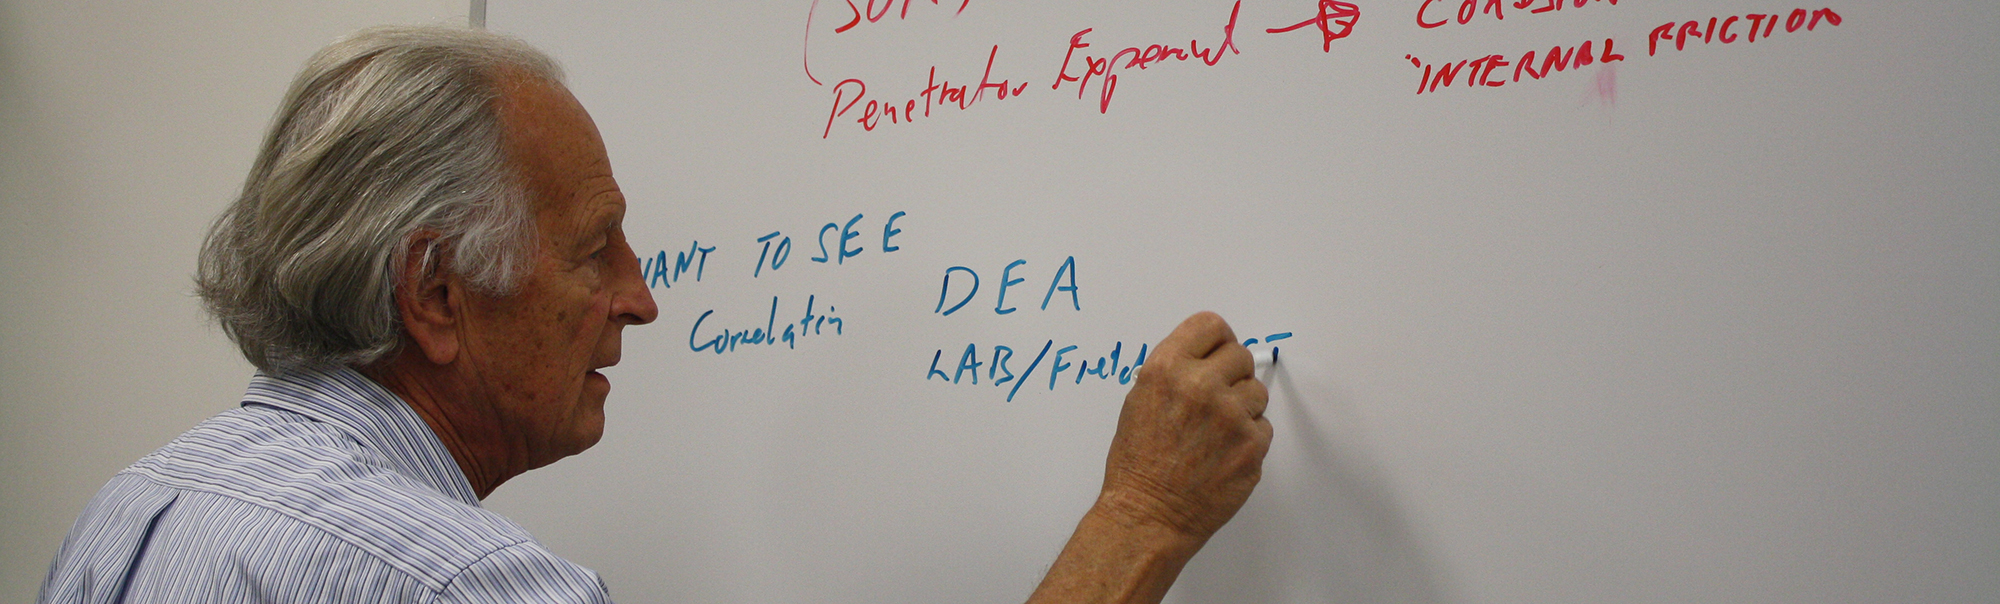 Penetrator Experiment → COHESION
INTERNAL FRICTION
WANT TO SEE
Correlation
DEA
LAB/Field